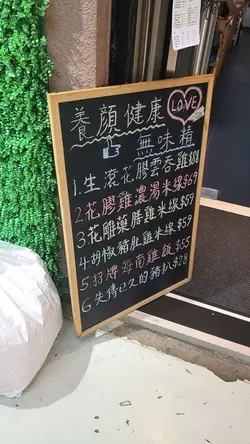 養顏健康
LOVE
無味精
1.生滾花膠雲吞雞$88
2花膠雞濃湯米線$69
3花雕藥膳雞米線$59
4胡椒豬肚雞米線$59
5.招牌海南雞飯$55
6失傳已久的豬扒$28